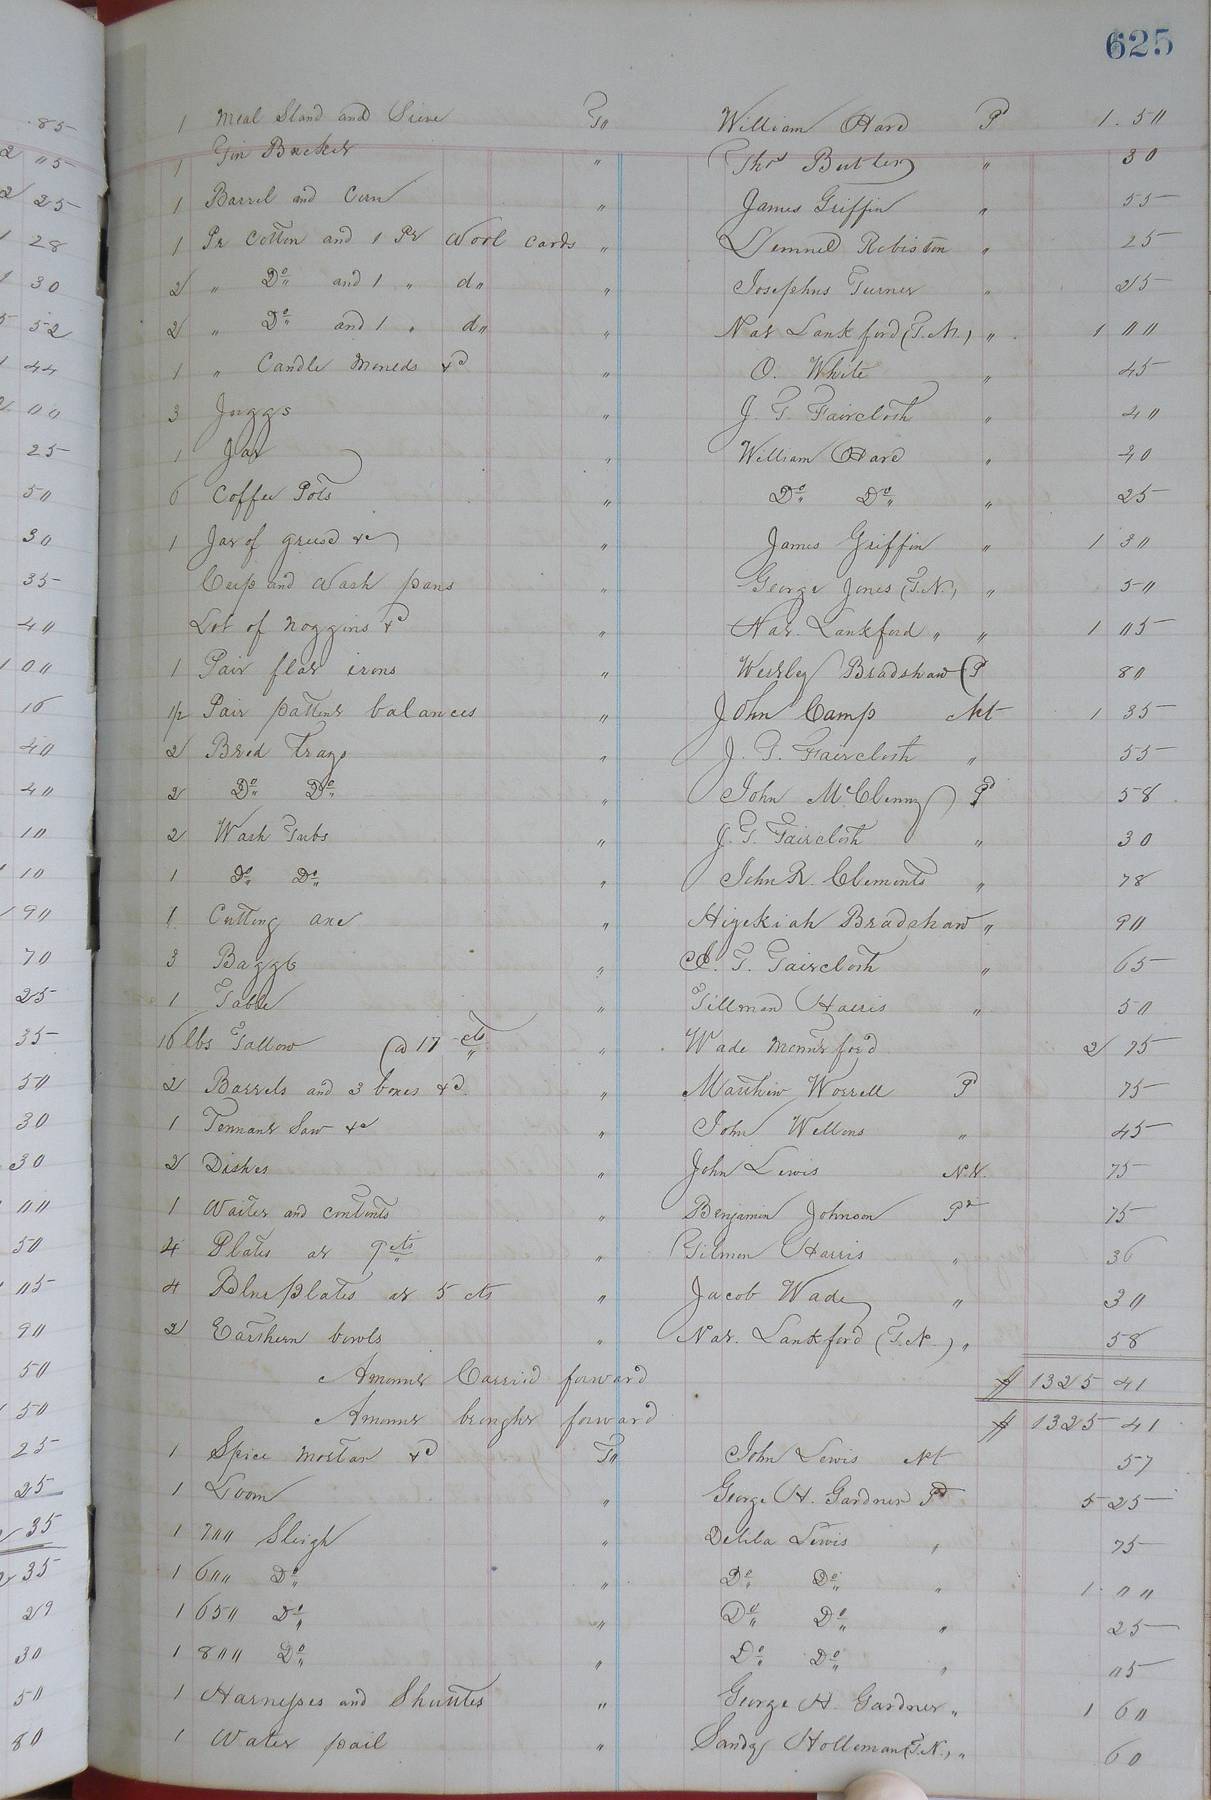 625
1 Meal Stand and Sieve To William Hare Pd 1.50
1 Tin Bucket " Thos Butler " 30
1 Barrel and Corn " James Griffin " 55
1 Pr Cotton and 1 Pr Wool cards " Lemuel Robiston " 25
2 " Do and 1 " do " Josephus Turner " 25
2 " Do and 1 " do " Nat Lankford (F.N.) " 1 00
1 " Candle Moneds &c " O. White " 45
3 Juggs " J. T. Faircloth " 40
1 Jar " William Hare " 20
6 Coffee Pots " Do Do " 25
1 Jar of greese &c " James Griffin " 1 30
Cup and Wash pans " George Jones (F.N.) " 50
Lot of Noggins &c " Nat. Lankford " " 1 05
1 Pair flat irons " Weslley Bradshaw P 80
1/2 Pair pattent balances " John Camp Nt 1 35
2 Bred trays " J. T. Faircloth " 55
2 Do Do " John McClenny Pd 58
2 Wash Tubs " J. T. Faircloth " 30
1 Do Do " John R. Clements " 78
1 Cutting axe " Hezekiah Bradshaw " 90
3 Baggs " J. T. Faircloth " 65
1 Table " Tillman Harris " 50
16 lbs Tallow @ 17 cts " Wade Mountford 2 75
2 Barrels and 3 boxes &c " Matthew Worrell P 75
1 Tennant Saw &c " John Wellons " 45
2 Dishes " John Lewis N.N. 75
1 Waiter and contents " Benjamin Johnson Pd 75
4 Plates at 9 cts " Gilmon Harris " 36
4 Blue plates at 5 cts " Jacob Wade " 30
2 Earthern bowls " Nat. Lankford (F.N.) " 58
Amount Carried forward $ 1325 41
Amount brought forward $ 1325 41
1 Spice Mortar &c To John Lewis Nt 57
1 Loom " George H. Gardner Pd 5 25
1 700 Sleigh " Delila Lewis " 75
1 600 Do " Do Do " 1 00
1 650 Do " Do Do " 25
1 800 Do " Do Do " 05
1 Harnesses and Shuttles " George H. Gardner " 1 60
1 Water pail " Sandy Holleman (F.N.) " 60
85
2 05
2 25
1 28
1 30
5 52
1 44
2 00
25
50
30
35
40
1 00
16
40
40
10
1 10
1 90
70
25
35
50
30
30
00
50
05
90
50
1 50
25
25
35
35
29
30
50
80